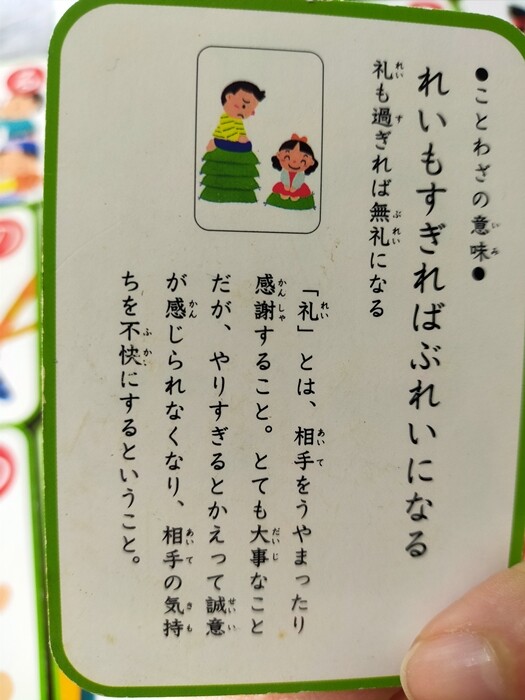 ●ことわざの意味●
れいもすぎればぶれいになる
礼も過ぎれば無礼になる
「礼」とは、相手をうやまったり
感謝すること。とても大事なこと
だが、やりすぎるとかえって誠意
が感じられなくなり、相手の気持
ちを不快にするということ。